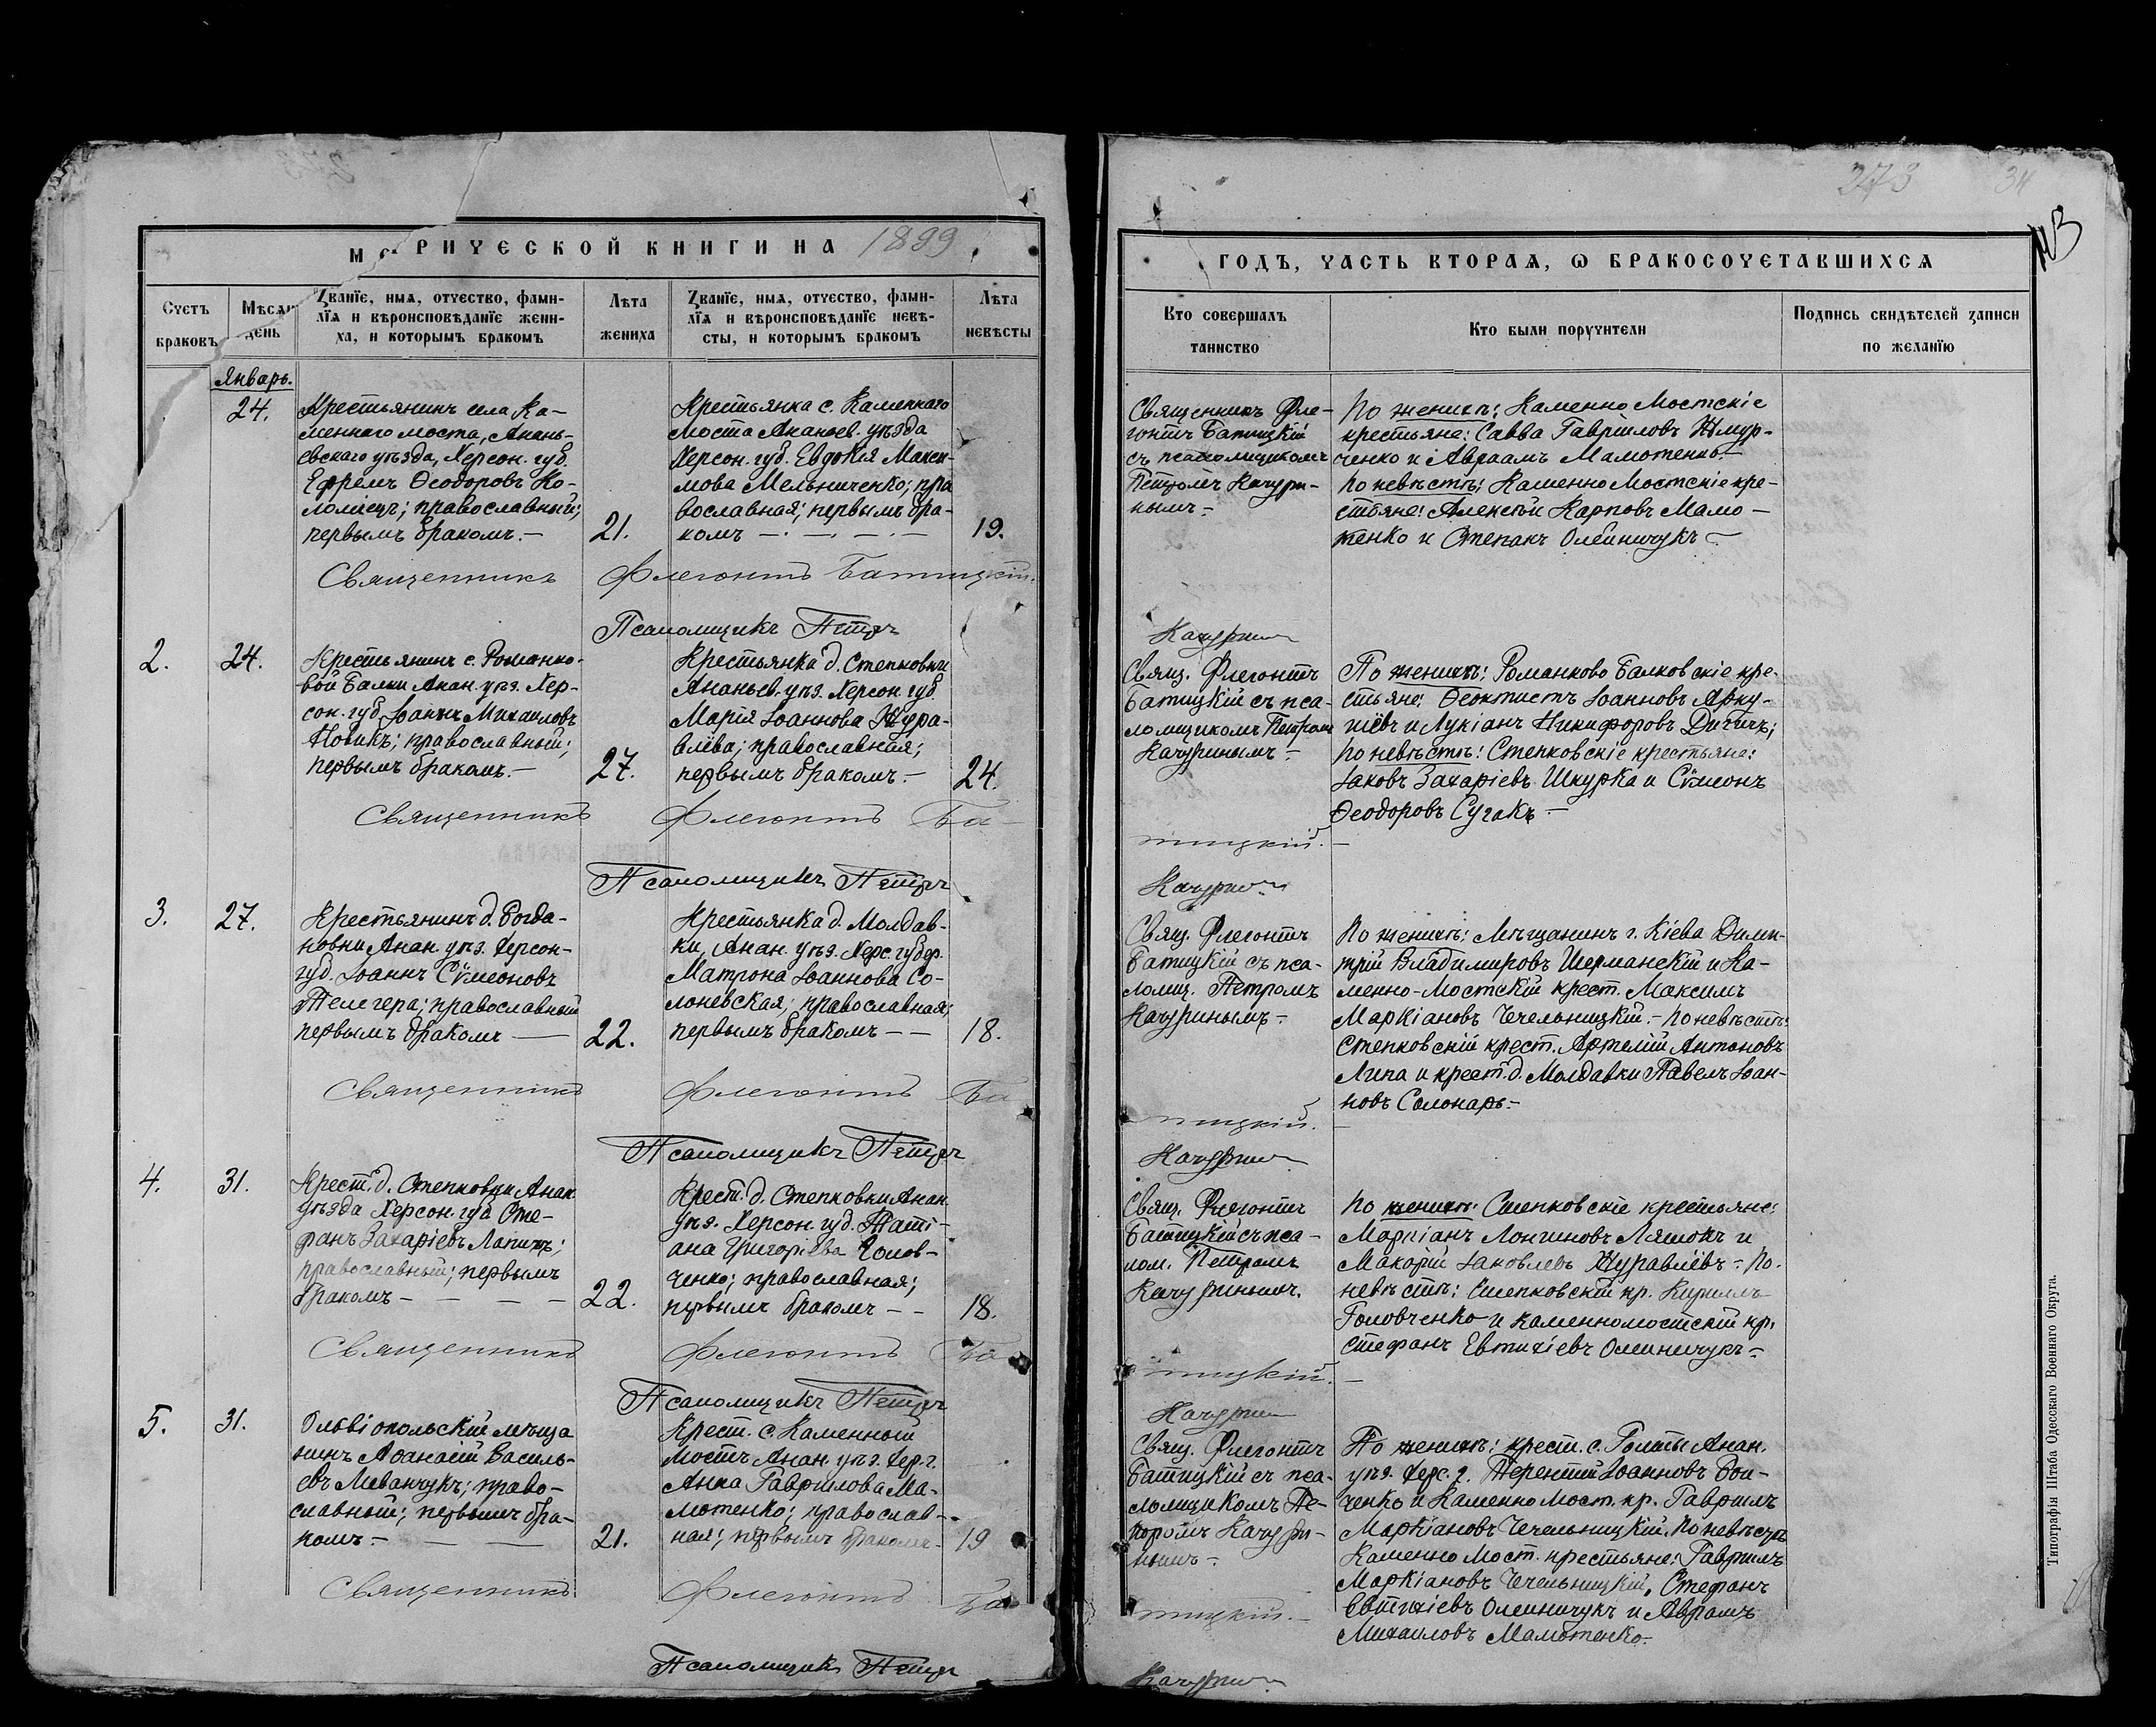 273 34
МЕ РИЧЕСКОЙ КНИГИ НА 1899
ГОДЪ, ЧАСТЬ ВТОРАЯ, Ѡ БРАКОСОЧЕТАВШИХСЯ
Счетъ браковъ
Мѣсяц день
Званїе, имя, отчество, фами-
лїя и вѣроисповѣданїе жени-
ха, и которымъ бракомъ
Лѣта
жениха
Званїе, имя, отчество, фами-
лїя и вѣроисповѣданїе невѣ-
сты, и которымъ бракомъ
Лѣта
невѣсты
Кто совершалъ
таинство
Кто были поручители
Подпись свидѣтелей записи
по желанїю
Январь.
24.
Крестьянинъ села Ка-
меннаго моста, Анань-
евскаго уѣзда, Херсон. губ.
Ефремъ Ѳеодоровъ Ко-
ломіецъ; православный;
первымъ бракомъ.-
21.
Крестьянка с. Каменнаго
Моста Ананьев. уѣзда
Херсон. губ. Евдокія Макси-
мова Мельниченко; пра
вославная; первымъ бра-
комъ
19.
Священникъ Фле-
гонтъ Батицкій
съ псаломщикомъ
Петромъ Качури-
нымъ.-
По женихѣ: Каменно Мостскіе
крестьяне: Савва Гавриловъ
ченко и Авраамъ Мамотенко.
по невѣстѣ: Каменно Мостскіе кре-
стьяне: Алексѣй Карповъ Мамо-
тенко и Степанъ Олейничукъ
Священникъ Флегонтъ Батицкій.
Псаломщикъ Петръ Качуринъ
2.
24.
Крестьянинъ с. Романко-
вой Балки Анан. уѣз. Хер-
сон. губ. Іоаннъ Михаиловъ
Новикъ; православный;
первымъ бракомъ.-
27.
Крестьянка д. Степковки
Ананьев. уѣз. Херсон. губ.
Марія Іоаннова Жура-
влёва; православная;
первымъ бракомъ.-
24.
Свящ. Флегонтъ
Батицкій съ пса-
ломщикомъ Петромъ
Качуринымъ.-
По женихѣ: Романково Балковскіе кре-
стьяне: Ѳеоктистъ Іоанновъ Арку-
шёвъ и Лукіанъ Никифоровъ Дигичъ;
по невѣстѣ: Степковскіе крестьяне:
Іаковъ Захаріевъ Шкурка и Сѵмеонъ
Ѳеодоровъ Сугакъ.-
Священникъ Флегонтъ Батицкій.-
Псаломщикъ Петръ Качуринъ
3.
27.
Крестьянинъ д. Богда-
новки Анан. уѣз. Херсон-
губ. Іоаннъ Сѵмеоновъ
Телегера; православный
первымъ бракомъ
22.
Крестьянка д. Молдав-
ки, Анан. уѣз. Херс. губ.
Матрона Іоаннова Со-
лоневская; православная;
первымъ бракомъ --
18.
Свящ. Флегонтъ
Батицкій съ пса-
ломщ. Петромъ
Качуринымъ.-
По женихѣ: Мѣщанинъ г. Кіева Дими-
трій Владимировъ Шерманскій и Ка-
менно-Мостскій крест. Максимъ
Маркіановъ Чечельницкій.- по невѣстѣ:
Степковскій крест. Артемій Антоновъ
Липа и крест. д. Молдавки Павелъ Іоан-
новъ Солонарь.-
Священникъ Флегонтъ Батицкій.
Псаломщикъ Петръ Качуринъ
4.
31.
Крест. д. Степковки Анан
уѣзда Херсон. губ. Сте-
фанъ Захаріевъ Лапинъ;
православный; первымъ
бракомъ - - - -
22.
Крест. д. Степковки Анан.
уѣз. Херсон. губ. Таті-
ана Григоріева Голов-
ченко; православная;
первымъ бракомъ --
18.
Свящ. Флегонтъ
Батицкій съ пса-
лом. Петромъ
Качуринымъ.
по женихѣ: Степковскіе крестьяне:
Маркіанъ Лонгиновъ Ляшокъ и
Макарій Іаковлевъ Журавлёвъ.- По.
невѣстѣ: Степковскій кр. Кириллъ
Головченко и каменномостскій кр.
Стефанъ Евтихіевъ Олейничукъ.-
Священникъ Флегонтъ Батицкій.-
Псаломщикъ Петръ Качуринъ
5.
31.
Ольвіопольскій мѣща
нинъ Аѳанасій Василь-
евъ Ливанчукъ; право-
славный; первымъ бра-
комъ.-
21.
Крест. с. Каменный
Мостъ Анан. уѣз. Хер. г.
Анна Гаврилова Ма-
мотенко; православ-
ная; первымъ бракомъ.
19
Свящ. Флегонтъ
Батицкій съ пса-
ломщикомъ Пе-
тромъ Качури-
нымъ.-
По женихѣ: крест. с. Голты Анан.
уѣз. Херс. г. Терентій Іоанновъ Бой-
ченко и Каменно Мост. кр. Гавриилъ
Маркіановъ Чечельницкій. по невѣстѣ
Каменно Мост. крестьяне: Гавриилъ
Маркіановъ Чечельницкій, Стефанъ
Евтихіевъ Олейничукъ и Авраамъ
Михаиловъ Мамотенко.-
Священникъ Флегонтъ Батицкій.-
Псаломщикъ Петръ Качуринъ.
Типографія Штаба Одесскаго Военнаго Округа.